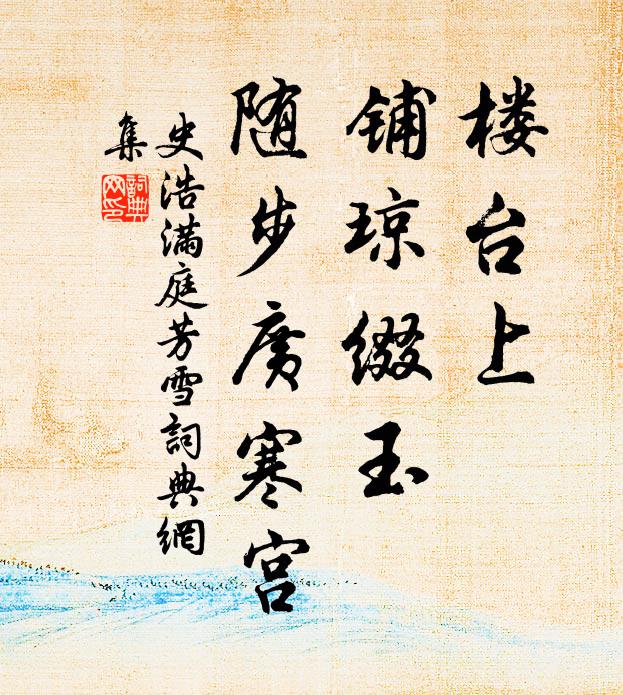 楼台上
铺琼缀玉
随步广寒宫
史浩满庭芳雪詞典網
集
詞典
网印